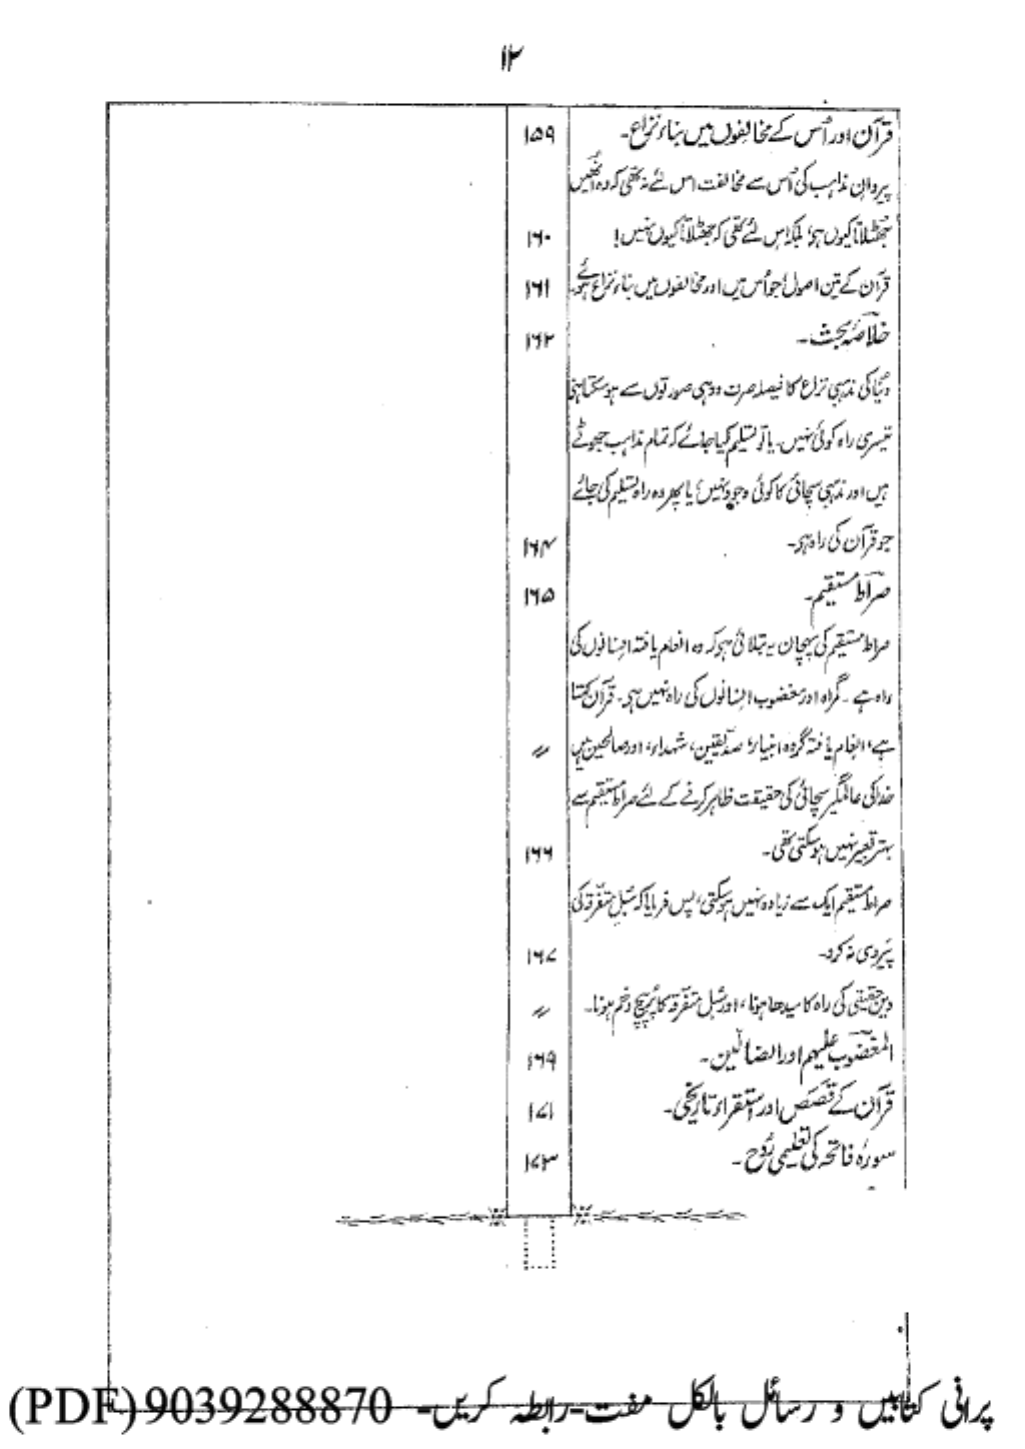 ۱۲
قرآن اور اُس کے مخالفوں میں بناء نزاع۔ ۱۵۹
پیروانِ مذاہب کی اُس سے مخالفت اس لئے نہ تھی کہ وہ اُنھیں
جھٹلاتا کیوں ہی، بلکہ اِس لئے تھی کہ جھٹلاتا کیوں نہیں! ۱۶۰
قرآن کے تین اصول جو اُس میں اور مخالفوں میں بناء نزاع ہوئے۔ ۱۶۱
خلاصۂ بحث۔ ۱۶۲
دنیا کی مذہبی نزاع کا فیصلہ صرف دو ہی صورتوں سے ہو سکتا ہی
تیسری راہ کوئی نہیں۔ یا تو تسلیم کیا جائے کہ تمام مذاہب جھوٹے
ہیں اور مذہبی سچائی کا کوئی وجود نہیں، یا پھر وہ راہ تسلیم کی جائے
جو قرآن کی راہ ہی۔ ۱۶۴
صراطِ مستقیم۔ ۱۶۵
صراط مستقیم کی پہچان یہ بتلائی ہو کہ وہ انعام یافتہ انسانوں کی
راہ ہے۔ گمراہ اور مغضوب انسانوں کی راہ نہیں ہی۔ قرآن کہتا
ہے، انعام یافتہ گروہ انبیاء، صدیقین، شہداء، اور صالحین ہیں ″
خدا کی عالمگیر سچائی کی حقیقت ظاہر کرنے کے لئے صراط مستقیم سے
بہتر تعبیر نہیں ہو سکتی تھی۔ ۱۶۶
صراط مستقیم ایک سے زیادہ نہیں ہو سکتی، پس فرمایا کہ سُبُلِ متفرقہ کی
پیروی نہ کرو۔ ۱۶۷
دینِ حقیقی کی راہ کا سیدھا ہونا، اور سُبُل متفرقہ کا پُر پیچ و خم ہونا۔ ″
المغضوب علیہم اور الضالین۔ ۱۶۹
قرآن کے قَصَص اور استقراء تاریخی۔ ۱۷۱
سورۂ فاتحہ کی تعلیمی رُوح۔ ۱۷۳
پرانی کتابیں و رسائل بالکل مفت-رابطہ کریں- 9039288870 (PDF)